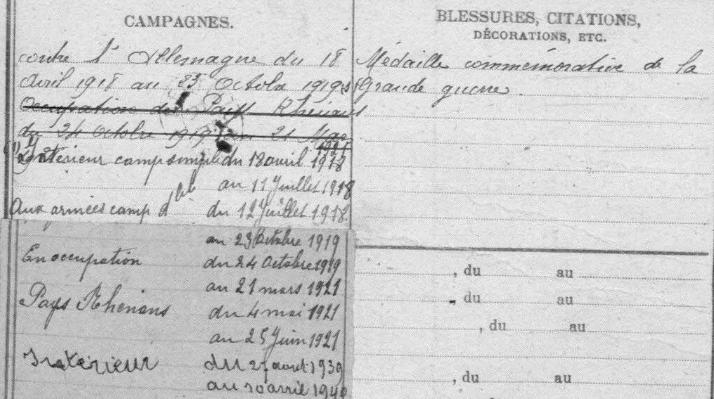 CAMPAGNES.
contre l'Allemagne du 18
Avril 1918 au 23 Octobre 1919
Occupation des Pays Rhénans
du 24 Octobre 1919 au 21 Mars
1921
Intérieur camp simple du 18 avril 1918
au 11 Juillet 1918
Aux armées camp dble du 12 Juillet 1918
au 23 Octobre 1919
En occupation du 24 Octobre 1919
au 21 mars 1921
Pays Rhénans du 4 mai 1921
au 25 Juin 1921
Intérieur du 27 aout 1939
au 10 avril 1940
BLESSURES, CITATIONS,
DÉCORATIONS, ETC.
Médaille commémorative de la
Grande guerre.
, du au
, du au
, du au
, du au